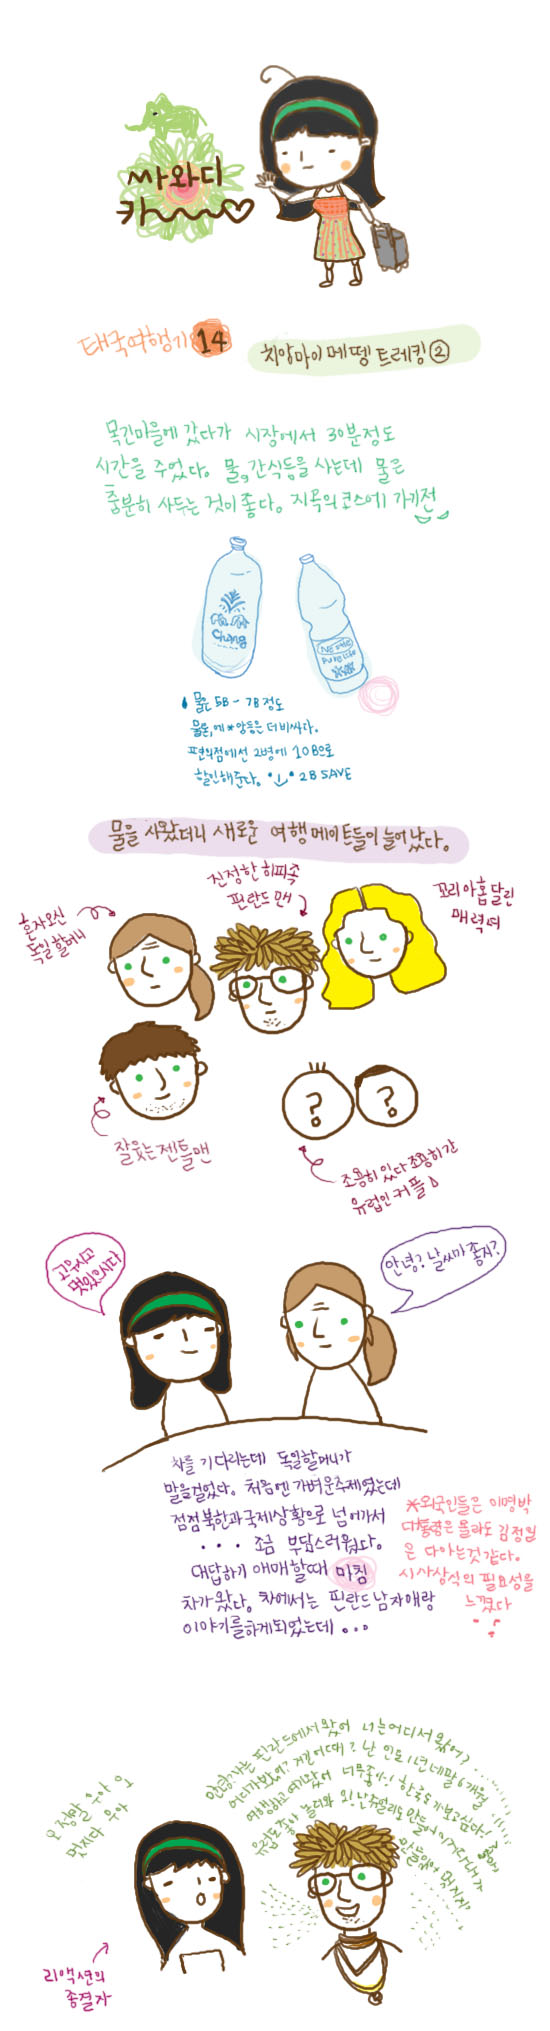 싸와디
카~~~♡
태국여행기 14
치앙마이 메땡 트레킹 ②
목긴마을에 갔다가 시장에서 30분정도
시간을 주었다. 물, 간식등을 사는데 물은
충분히 사두는 것이 좋다. 지옥의 코스에 가기전
Chang
Nestle
Pure Life
물은 5B - 7B 정도
편의점에선 2병에 10B으로
할인해준다. 2B SAVE
물을 사왔더니 새로운 여행메이트들이 늘어났다.
혼자오신
독일할머니
진정한 히피족
핀란드 맨
꼬리아홉달린
매력녀
잘웃는젠틀맨
?
?
조용히 있다 조용히간
유럽인커플
고우시고
멋있으시다
안녕? 날씨가 좋지?
차를 기다리는데 독일할머니가
말을걸었다. 처음엔 가벼운주제였는데
점점 북한과국제상황으로 넘어가서
... 조금 부담스러웠다.
대답하기 애매할때 마침
차가 왔다. 차에서는 핀란드남자애랑
이야기를하게되었는데 ...
*외국인들은 이명박
대통령은 몰라도 김정일
은 다아는것같다.
시사상식의 필요성을
느꼈다
오 정말 우아 오
멋지다 우아
핀란드에서 왔어 너는어디서 왔어?
어디가봤어? 거긴어때? 난 인도1년네팔6개월
여행하고 여기왔어 너무좋아! 한국도 가보고싶다!
리액션의
종결자